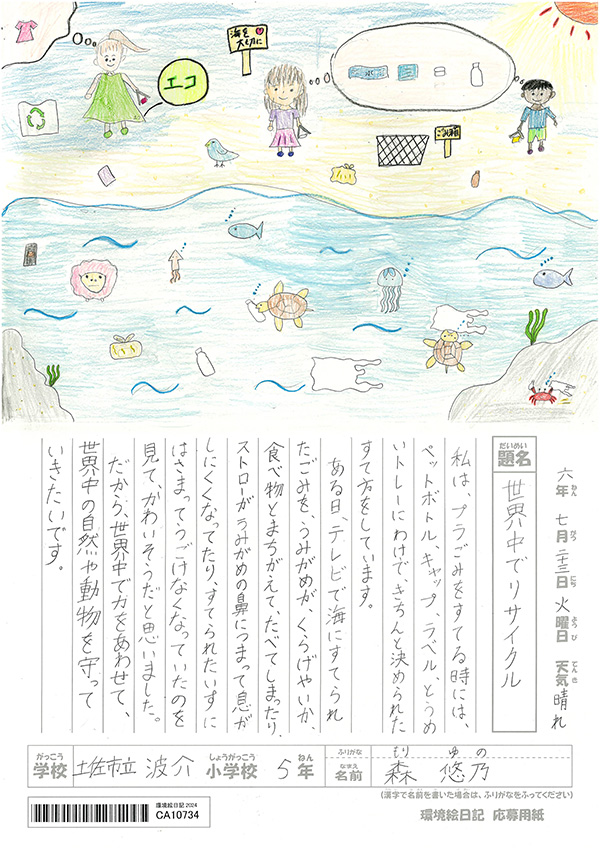 海を
大切に
エコ
ごみ箱
六年 七月 二十三日 火曜日 天気 晴れ
ねん がつ にち ようび てんき
だいめい
題名
世界中でリサイクル
私は、プラごみをすてる時には、
ペットボトル、キャップ、ラベル、とうめ
いトレーにわけて、きちんと決められた
すて方をしています。
ある日、テレビで海にすてられ
たごみを、うみがめが、くらげやいか、
食べ物とまちがえて、たべてしまったり、
ストローがうみがめの鼻につまって息が
しにくくなってたり、すてられたいすに
はさまってうごけなくなっていたのを
見て、かわいそうだと思いました。
だから、世界中で力をあわせて、
世界中の自然や動物を守って
いきたいです。
がっこう しょうがっこう ねん ふりがな もり ゆの
学校 土佐市立 波介 小学校 5年 なまえ 名前 森 悠乃
(漢字で名前を書いた場合は、ふりがなをふってください)
環境絵日記2024
CA10734
環境絵日記 応募用紙